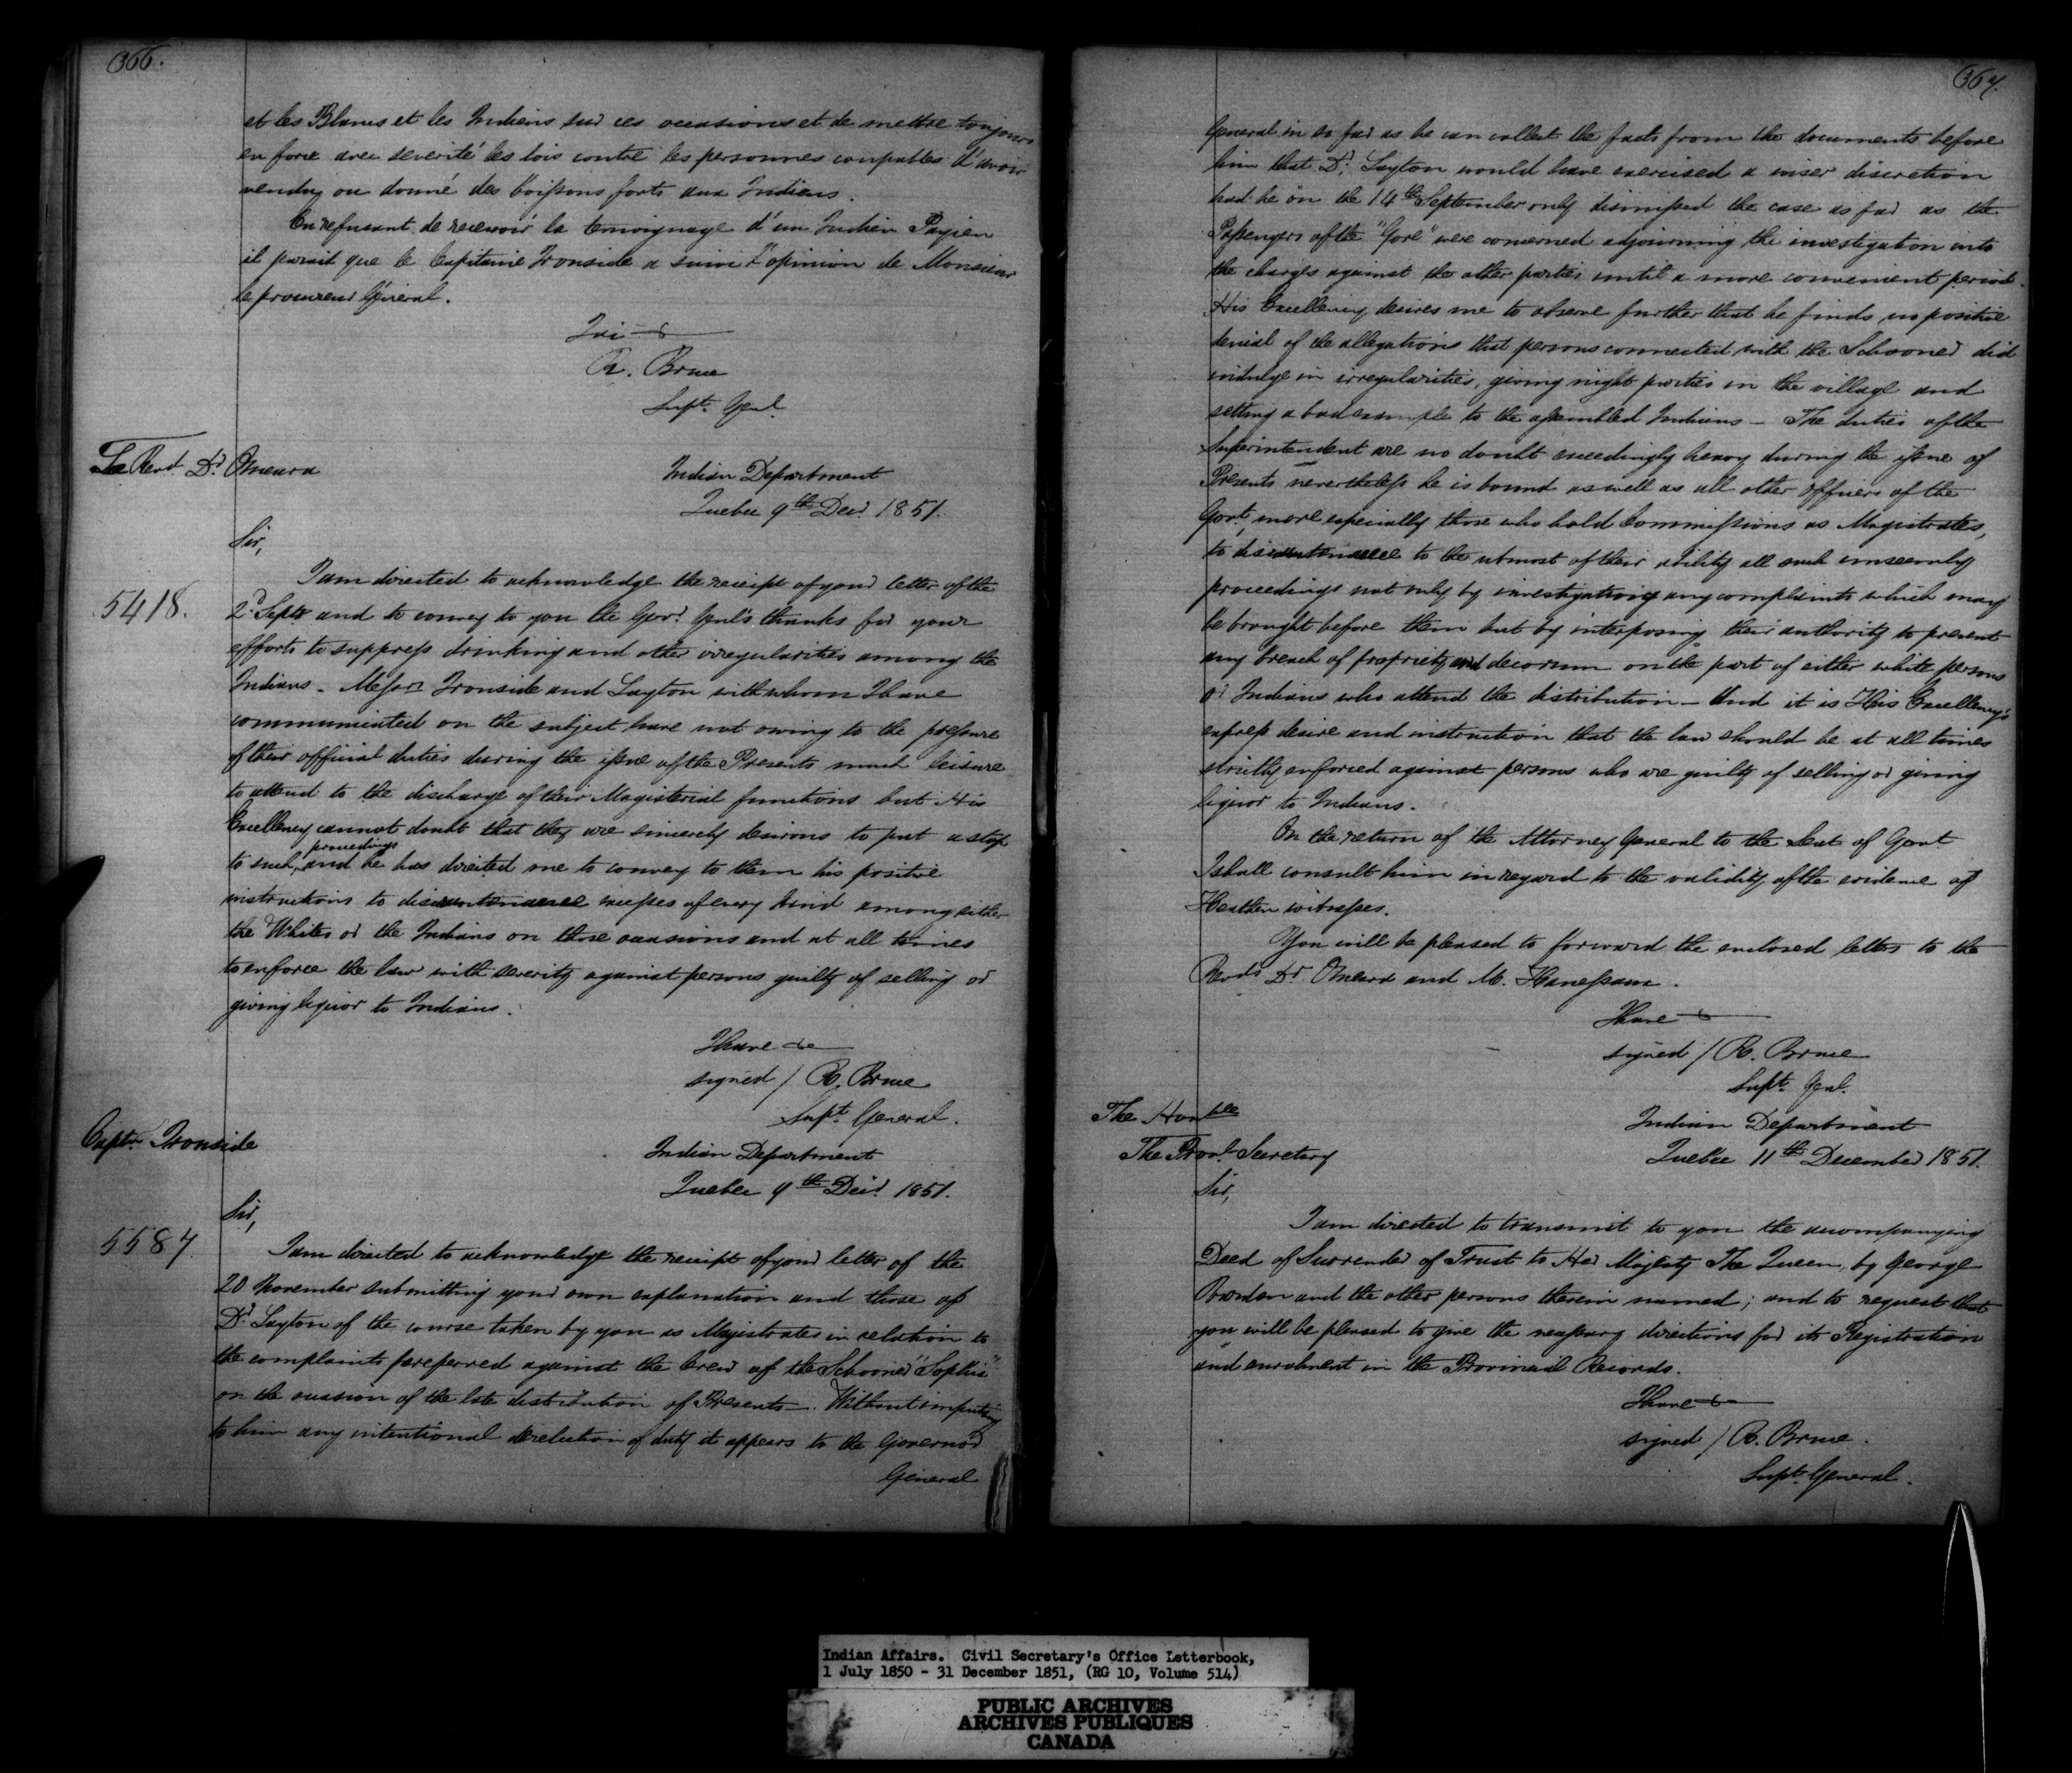 366.
et les Blancs et les Indiens sur ces occasions et de mettre toujours
en force avec severité les lois contre les personnes coupables d'avoir
vendu ou donné des boissons forts aux Indiens.
En refusant de recevoir le temoignage d'un Indien Payien
il parait que le Capitaine Ironside a suivi l'opinion de Monsieur
le procureur Géneral.
R. Bruce
Supt. Genl.
Le Revd. Dr. Omeara
Indian Department
Quebec 9th Decr. 1851.
Sir,
5418.
I am directed to acknowledge the receipt of your letter of the
2d. Septr and to convey to you the Govr. Genl's thanks for your
efforts to suppress drinking and other irregularities among the
Indians - Messrs Ironside and Layton with whom I have
communicated on the subject have not owing to the pressure
of their official duties during the issue of the Presents much leisure
to attend to the discharge of their Magisterial functions but His
Excellency cannot doubt that they are sincerely desirous to put a stop
to such proceedings and he has directed me to convey to them his positive
instructions to discountenance excesses of every kind among either
the Whites or the Indians on those occasions and at all times
to enforce the law with severity against persons guilty of selling or
giving liquor to Indians.
I have &c
signed / R. Bruce
Supt. General.
Captn. Ironside
Indian Department
Quebec 9th Decr. 1851.
Sir,
5587.
I am directed to acknowledge the receipt of your letter of the
20 November submitting your own explanation and those of
Dr. Layton of the course taken by you as Magistrates in relation to
the complaints preferred against the Crew of the Schooner "Sophia"
on the occasion of the late distribution of Presents -. Without imputing
to him any intentional dereliction of duty it appears to the Governor
General
367.
General in so far as he can collect the facts from the documents before
him that Dr. Layton would have exercised a wiser discretion
had he on the 14th September only dismissed the case as far as the
Passengers of the "Gore" were concerned adjourning the investigation into
the charges against the other parties until a more convenient period.
His Excellency desires me to observe further that he finds no positive
denial of the allegations that persons connected with the Schooner did
indulge in irregularities, giving night parties in the village and
setting a bad example to the assembled Indians - The duties of the
Superintendent are no doubt exceedingly heavy during the issue of
Presents nevertheless he is bound as well as all other officers of the
Govt. more especially those who hold Commissions as Magistrates,
to discountenance to the utmost of their ability all such unseemly
proceedings not only by investigating any complaints which may
be brought before them but by interposing their authority to prevent
any breach of propriety and decorum on the part of either white persons
or Indians who attend the distribution - And it is His Excellency's
express desire and instruction that the law should be at all times
strictly enforced against persons who are guilty of selling or giving
liquor to Indians.
On the return of the Attorney General to the Seat of Govnt
I shall consult him in regard to the validity of the evidence of
Heathen witnesses.
You will be pleased to forward the enclosed letters to the
Revds Dr. Omeara and M. Hanessam.
I have &c
signed / R. Bruce
Supt. Genl.
The Honble
The Provl. Secretary
Indian Department
Quebec 11th December 1851.
Sir,
I am directed to transmit to you the accompanying
Deed of Surrender of Trust to Her Majesty The Queen, by George
and the other persons therein named; and to request that
you will be pleased to give the necessary directions for its Registration
and enrolment in the Provincial Records.
I have &c
signed / R. Bruce.
Supt. General.
Indian Affairs. Civil Secretary's Office Letterbook,
1 July 1850 - 31 December 1851, (RG 10, Volume 514)
PUBLIC ARCHIVES
ARCHIVES PUBLIQUES
CANADA